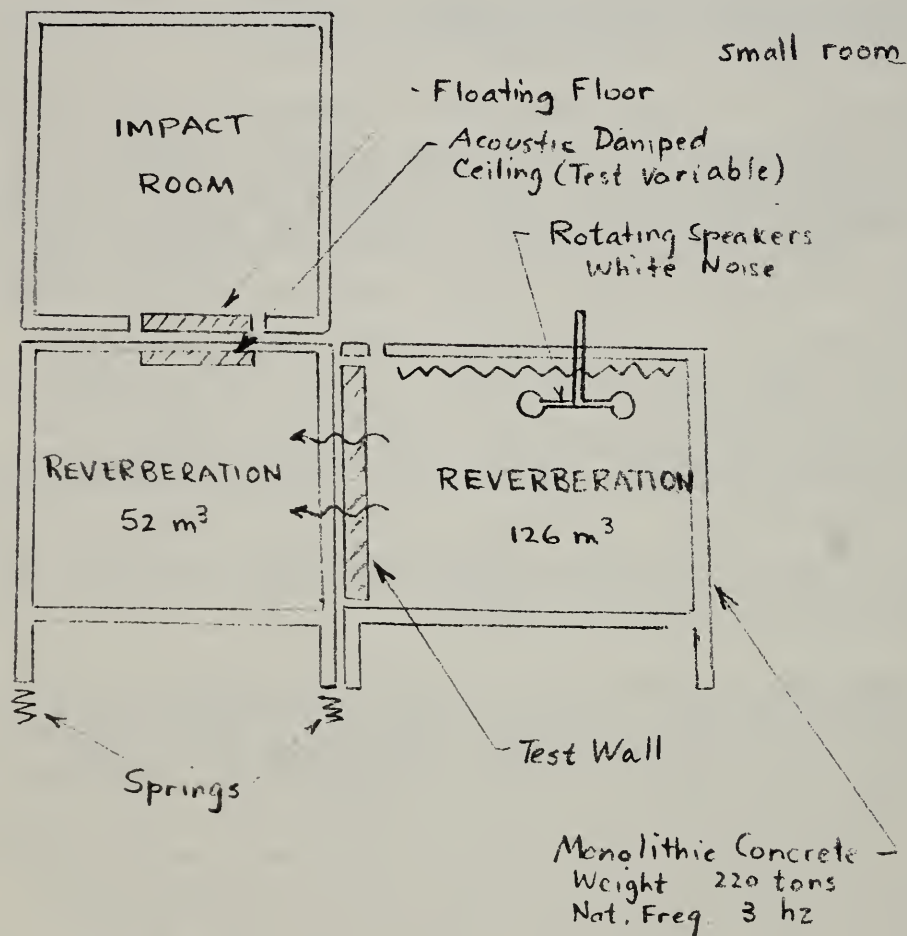 small room
- Floating Floor
IMPACT
ROOM
Acoustic Damped
Ceiling (Test Variable)
Rotating Speakers
White Noise
REVERBERATION
52 m³
REVERBERATION
126 m³
Test Wall
Springs
Monolithic Concrete
Weight 220 tons
Nat. Freq. 3 hz